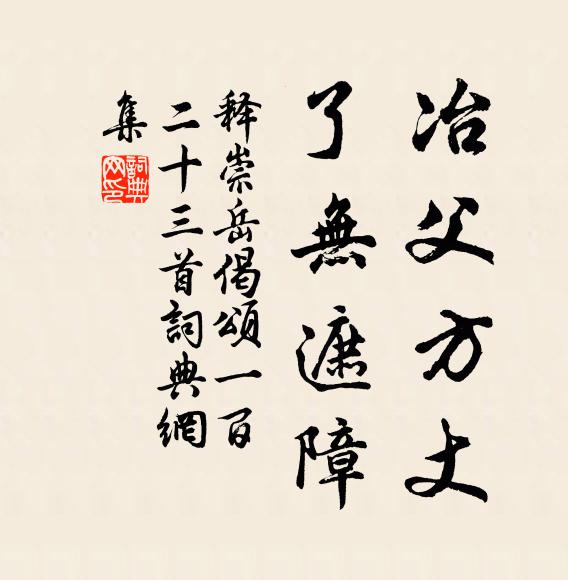 冶父方丈
了無遮障
釋崇岳偈頌一百
二十三首詞典網
集
詞典网印